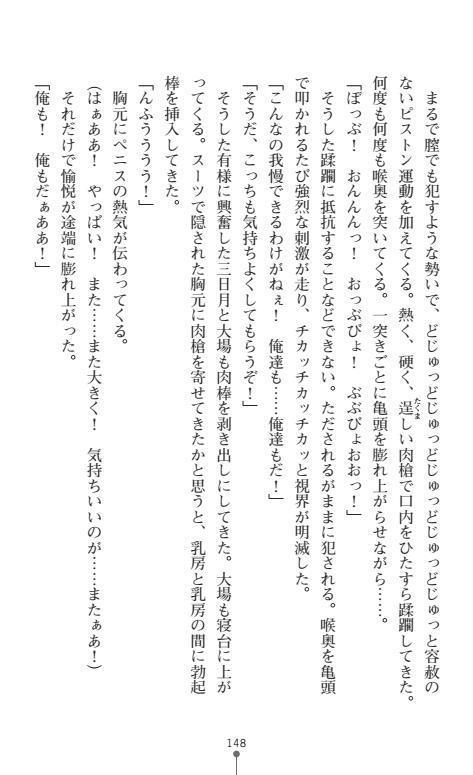 まるで膣でも犯すような勢いで、どじゅっどじゅっどじゅっどじゅっどじゅっと容赦の
ないピストン運動を加えてくる。熱く、硬く、逞しい肉槍で口内をひたすら蹂躙してきた。
たくま
何度も何度も喉奥を突いてくる。一突きごとに亀頭を膨れ上がらせながら……。
「ぽっぶ！　おんんんっ！　おっぶぴょ！　ぶぶぴょおおっ！」
　そうした蹂躙に抵抗することなどできない。ただされるがままに犯される。喉奥を亀頭
で叩かれるたび強烈な刺激が走り、チカッチカッチカッと視界が明滅した。
「こんなの我慢できるわけがねぇ！　俺達も……俺達もだ！」
「そうだ、こっちも気持ちよくしてもらうぞ！」
　そうした有様に興奮した三日月と大場も肉棒を剥き出しにしてきた。大場も寝台に上が
ってくる。スーツで隠された胸元に肉槍を寄せてきたかと思うと、乳房と乳房の間に勃起
棒を挿入してきた。
「んふうううう！」
　胸元にペニスの熱気が伝わってくる。
（はぁああ！　やっばい！　また……また大きく！　気持ちいいのが……またぁあ！）
　それだけで愉悦が途端に膨れ上がった。
「俺も！　俺もだぁああ！」
148